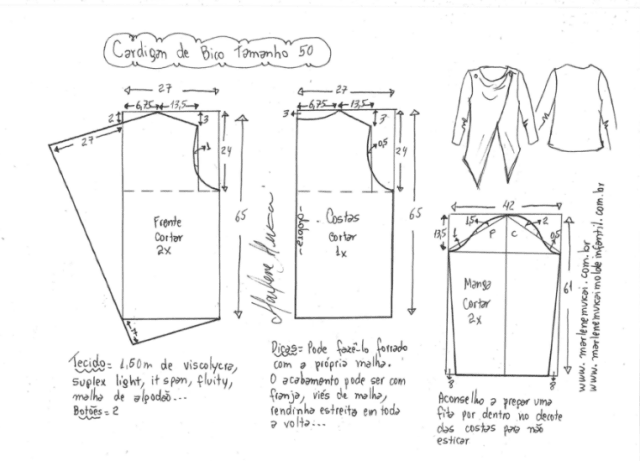 Cardigan de Bico Tamanho 50
27
6,75 13,5
2
3
27
1
24
65
Frente
Cortar
2x
27
6,75 13,5
3
3
0,5
24
65
-dobra-
Costas
Cortar
1x
Marlene Mukai
42
13,5
1
1,5
P
C
2
0,5
61
Manga
Cortar
2x
8
8
www.marlenemukai.com.br
www.marlenemukaimoldeinfantil.com.br
Tecido= 1,50m de viscolycra,
suplex light, it span, fluity,
malha de algodão...
Botões= 2
Dicas= Pode fazê-lo forrado
com a própria malha.
O acabamento pode ser com
franja, viés de malha,
rendinha estreita em toda
a volta...
Aconselho a prepar uma
fita por dentro no decote
das costas para não
esticar